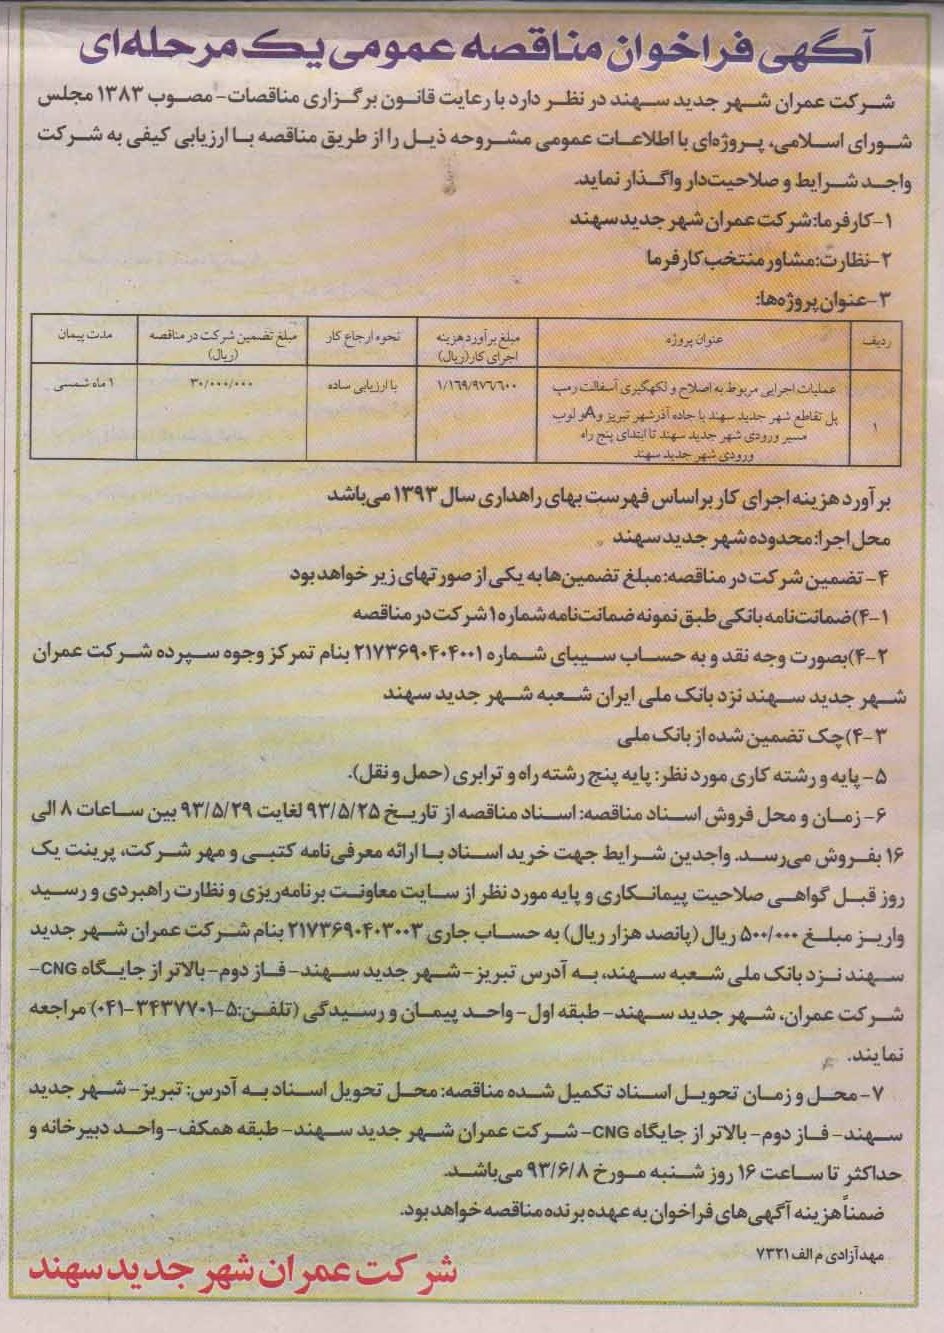 آگهی فراخوان مناقصه عمومی یک مرحله‌ای
شرکت عمران شهر جدید سهند در نظر دارد با رعایت قانون برگزاری مناقصات- مصوب ۱۳۸۳ مجلس
شورای اسلامی، پروژه‌ای با اطلاعات عمومی مشروحه ذیل را از طریق مناقصه با ارزیابی کیفی به شرکت
واجد شرایط و صلاحیت‌دار واگذار نماید.
۱-کارفرما: شرکت عمران شهر جدید سهند
۲-نظارت: مشاور منتخب کارفرما
۳-عنوان پروژه‌ها:
ردیف عنوان پروژه مبلغ برآورد هزینه اجرای کار (ریال) نحوه ارجاع کار مبلغ تضمین شرکت در مناقصه (ریال) مدت پیمان
۱ عملیات اجرایی مربوط به اصلاح و لکهگیری آسفالت رمپ ۱/۱۶۹/۹۷۶/۶۰۰ با ارزیابی ساده ۳۰/۰۰۰/۰۰۰ ۱ ماه شمسی
پل تقاطع شهر جدید سهند با جاده آذرشهر تبریز و A و لوپ
مسیر ورودی شهر جدید سهند تا ابتدای پنج راه
ورودی شهر جدید سهند
برآورد هزینه اجرای کار براساس فهرست بهای راهداری سال ۱۳۹۳ می‌باشد
محل اجرا: محدوده شهر جدید سهند
۴- تضمین شرکت در مناقصه: مبلغ تضمین‌ها به یکی از صورتهای زیر خواهد بود
۴-۱) ضمانت‌نامه بانکی طبق نمونه ضمانت‌نامه شماره ۱ شرکت در مناقصه
۴-۲) بصورت وجه نقد و به حساب سیبای شماره ۲۱۷۳۶۹۰۴۰۴۰۰۱ بنام تمرکز وجوه سپرده شرکت عمران
شهر جدید سهند نزد بانک ملی ایران شعبه شهر جدید سهند
۴-۳) چک تضمین شده از بانک ملی
۵- پایه و رشته کاری مورد نظر: پایه پنج رشته راه و ترابری (حمل و نقل).
۶- زمان و محل فروش اسناد مناقصه: اسناد مناقصه از تاریخ ۹۳/۵/۲۵ لغایت ۹۳/۵/۲۹ بین ساعات ۸ الی
۱۶ بفروش می‌رسد. واجدین شرایط جهت خرید اسناد با ارائه معرفی‌نامه کتبی و مهر شرکت، پرینت یک
روز قبل گواهی صلاحیت پیمانکاری و پایه مورد نظر از سایت معاونت برنامه‌ریزی و نظارت راهبردی و رسید
واریز مبلغ ۵۰۰/۰۰۰ ریال (پانصد هزار ریال) به حساب جاری ۲۱۷۳۶۹۰۴۰۳۰۰۳ بنام شرکت عمران شهر جدید
سهند نزد بانک ملی شعبه سهند، به آدرس تبریز- شهر جدید سهند- فاز دوم- بالاتر از جایگاه CNG-
شرکت عمران، شهر جدید سهند- طبقه اول- واحد پیمان و رسیدگی (تلفن: ۵-۳۴۳۷۷۰۱-۰۴۱) مراجعه
نمایند.
۷- محل و زمان تحویل اسناد تکمیل شده مناقصه: محل تحویل اسناد به آدرس: تبریز- شهر جدید
سهند- فاز دوم- بالاتر از جایگاه CNG- شرکت عمران شهر جدید سهند- طبقه همکف- واحد دبیرخانه و
حداکثر تا ساعت ۱۶ روز شنبه مورخ ۹۳/۶/۸ می‌باشد.
ضمناً هزینه آگهی‌های فراخوان به عهده برنده مناقصه خواهد بود.
مهد آزادی م الف ۷۳۲۱
شرکت عمران شهر جدید سهند